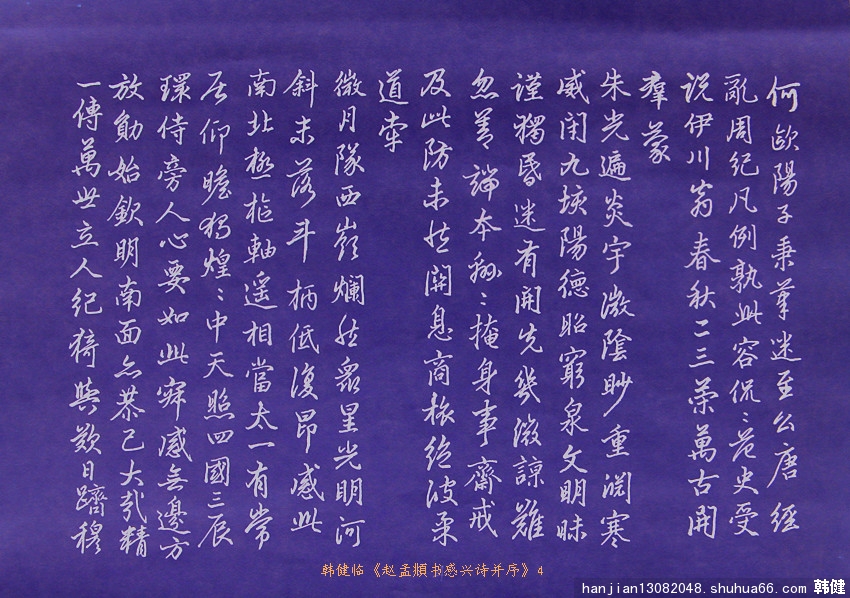 何歐陽子秉筆迷至公唐經
亂周紀凡例孰此容侃〻范史受
説伊川翁春秋二三策萬古開
羣蒙
朱光遍炎宇微陰眇重淵寒
威閉九垓陽德昭窮泉文明昧
謹獨昏迷有開先幾微諒難
忽善端本綿〻掩身事齋戒
及此防未然閉息商旅絶彼柔
道牽
微月隊西嶺爛然衆星光明河
斜未落斗柄低復昂感此
南北極樞軸遥相當太一有常
居仰瞻獨煌〻中天照四國三辰
環侍旁人心要如此寂感無邊方
放勛始欽明南面亦恭己大哉精
一傳萬世立人紀猗與歎日躋穆
韩健临《赵孟頫书感兴诗并序》4
hanjian13082048.shuhua66.com 韩健